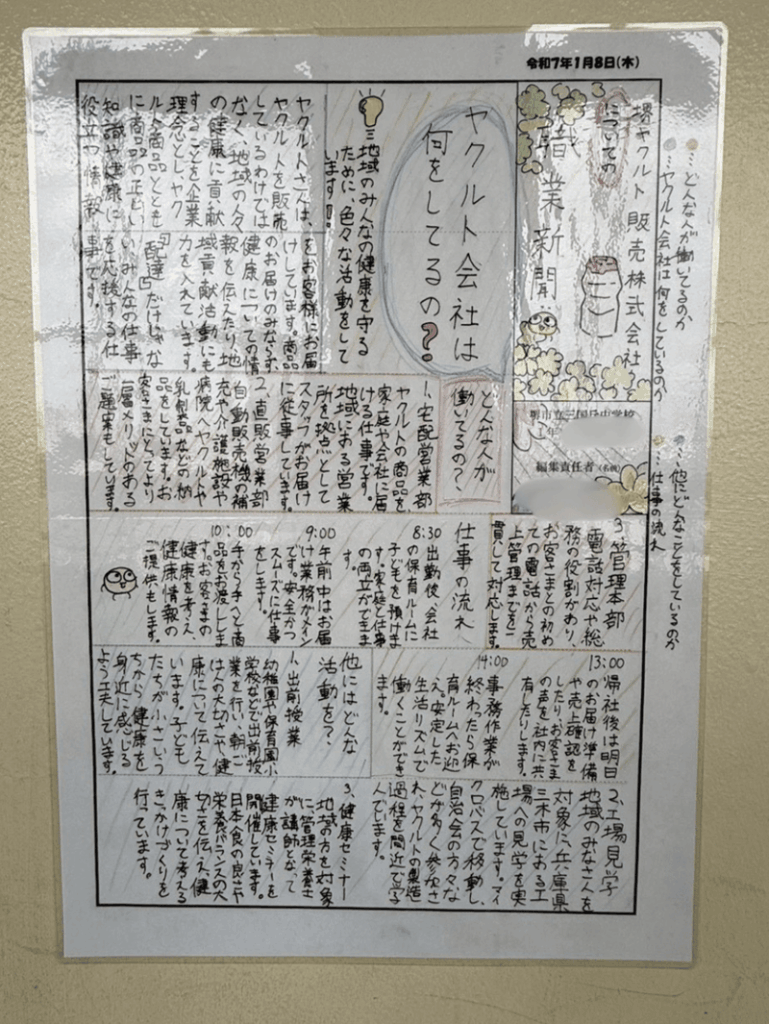 令和7年1月8日(木)
…どんな人が働いてるのか
…ヤクルト会社は何をしているのか
…他にどんなことをしているのか
…仕事の流れ
堺ヤクルト販売株式会社
についての
職業新聞
編集責任者(名前)
ヤクルト会社は
何をしてるの?
地域のみんなの健康を守る
ために色々な活動をして
います!
ヤクルトさんは、
ヤクルトを販売
しているわけでは
なく、地域の人々
の健康に貢献
することを企業
理念とし、ヤク
ルト商品ととも
に商品の正しい
知識や健康に
役立つ情報
をお客様にお届
けしています。商品
のお届けのみならず、
健康についての情
報を伝えたり、地
域貢献活動にも
力を入れています。
「配達」だけじゃな
い、みんなの仕事
を応援する仕
事です。
どんな人が
働いてるの?
1、宅配営業部
ヤクルトの商品を
家庭や会社に届
ける仕事です。
地域にある営業
所を拠点として
スタッフがお届け
に従事しています。
2、直販営業部
自動販売機の補
充や介護施設や
病院へヤクルトや
乳製品などの納
品をしています。お
客さまにとってより
一層メリットのある
ご提案もしています。
3、管理本部
電話対応や総
務の役割があり、
お客さまとの初め
ての電話から売
上管理までを一
貫して対応します。
仕事の流れ
8:30
出勤後、会社
の保育ルームに
子どもを預けま
す。家庭と仕事
の両立ができま
す。
9:00
午前中はお届
け業務がメイン
です。安全かつ
スムーズに仕事
をします。
10:00
手から手へと商
品をお渡ししま
す。お客さまの
健康を考え、
健康情報の
ご提供もします。
13:00
帰社後は明日
のお届け準備
や売上確認を
したり、お客さま
の声を社内に共
有したりします。
14:00
事務作業が
終わったら保
育ルームへお迎
え。安定した
生活リズムで
働くことができ
ます。
他にはどんな
活動を?
1、出前授業
幼稚園や保育園、小
学校などで出前授
業を行い、朝ご
はんの大切さや健
康について伝えて
います。子ども
たちが小さいう
ちから、健康を
身近に感じる
よう工夫しています。
2、工場見学
地域のみなさんを
対象に、兵庫県
三木市にある工
場への見学を実
施しています。マイ
クロバスで移動し、
自治会の方々な
どが多く参加さ
れ、ヤクルトの製造
過程を間近で学
んでいます。
3、健康セミナー
地域の方を対象
に、管理栄養士
が講師となって
健康セミナーを
開催しています。
日本食の良さや
栄養バランスの大
切さを伝え、健
康について考える
きっかけづくりを
行っています。